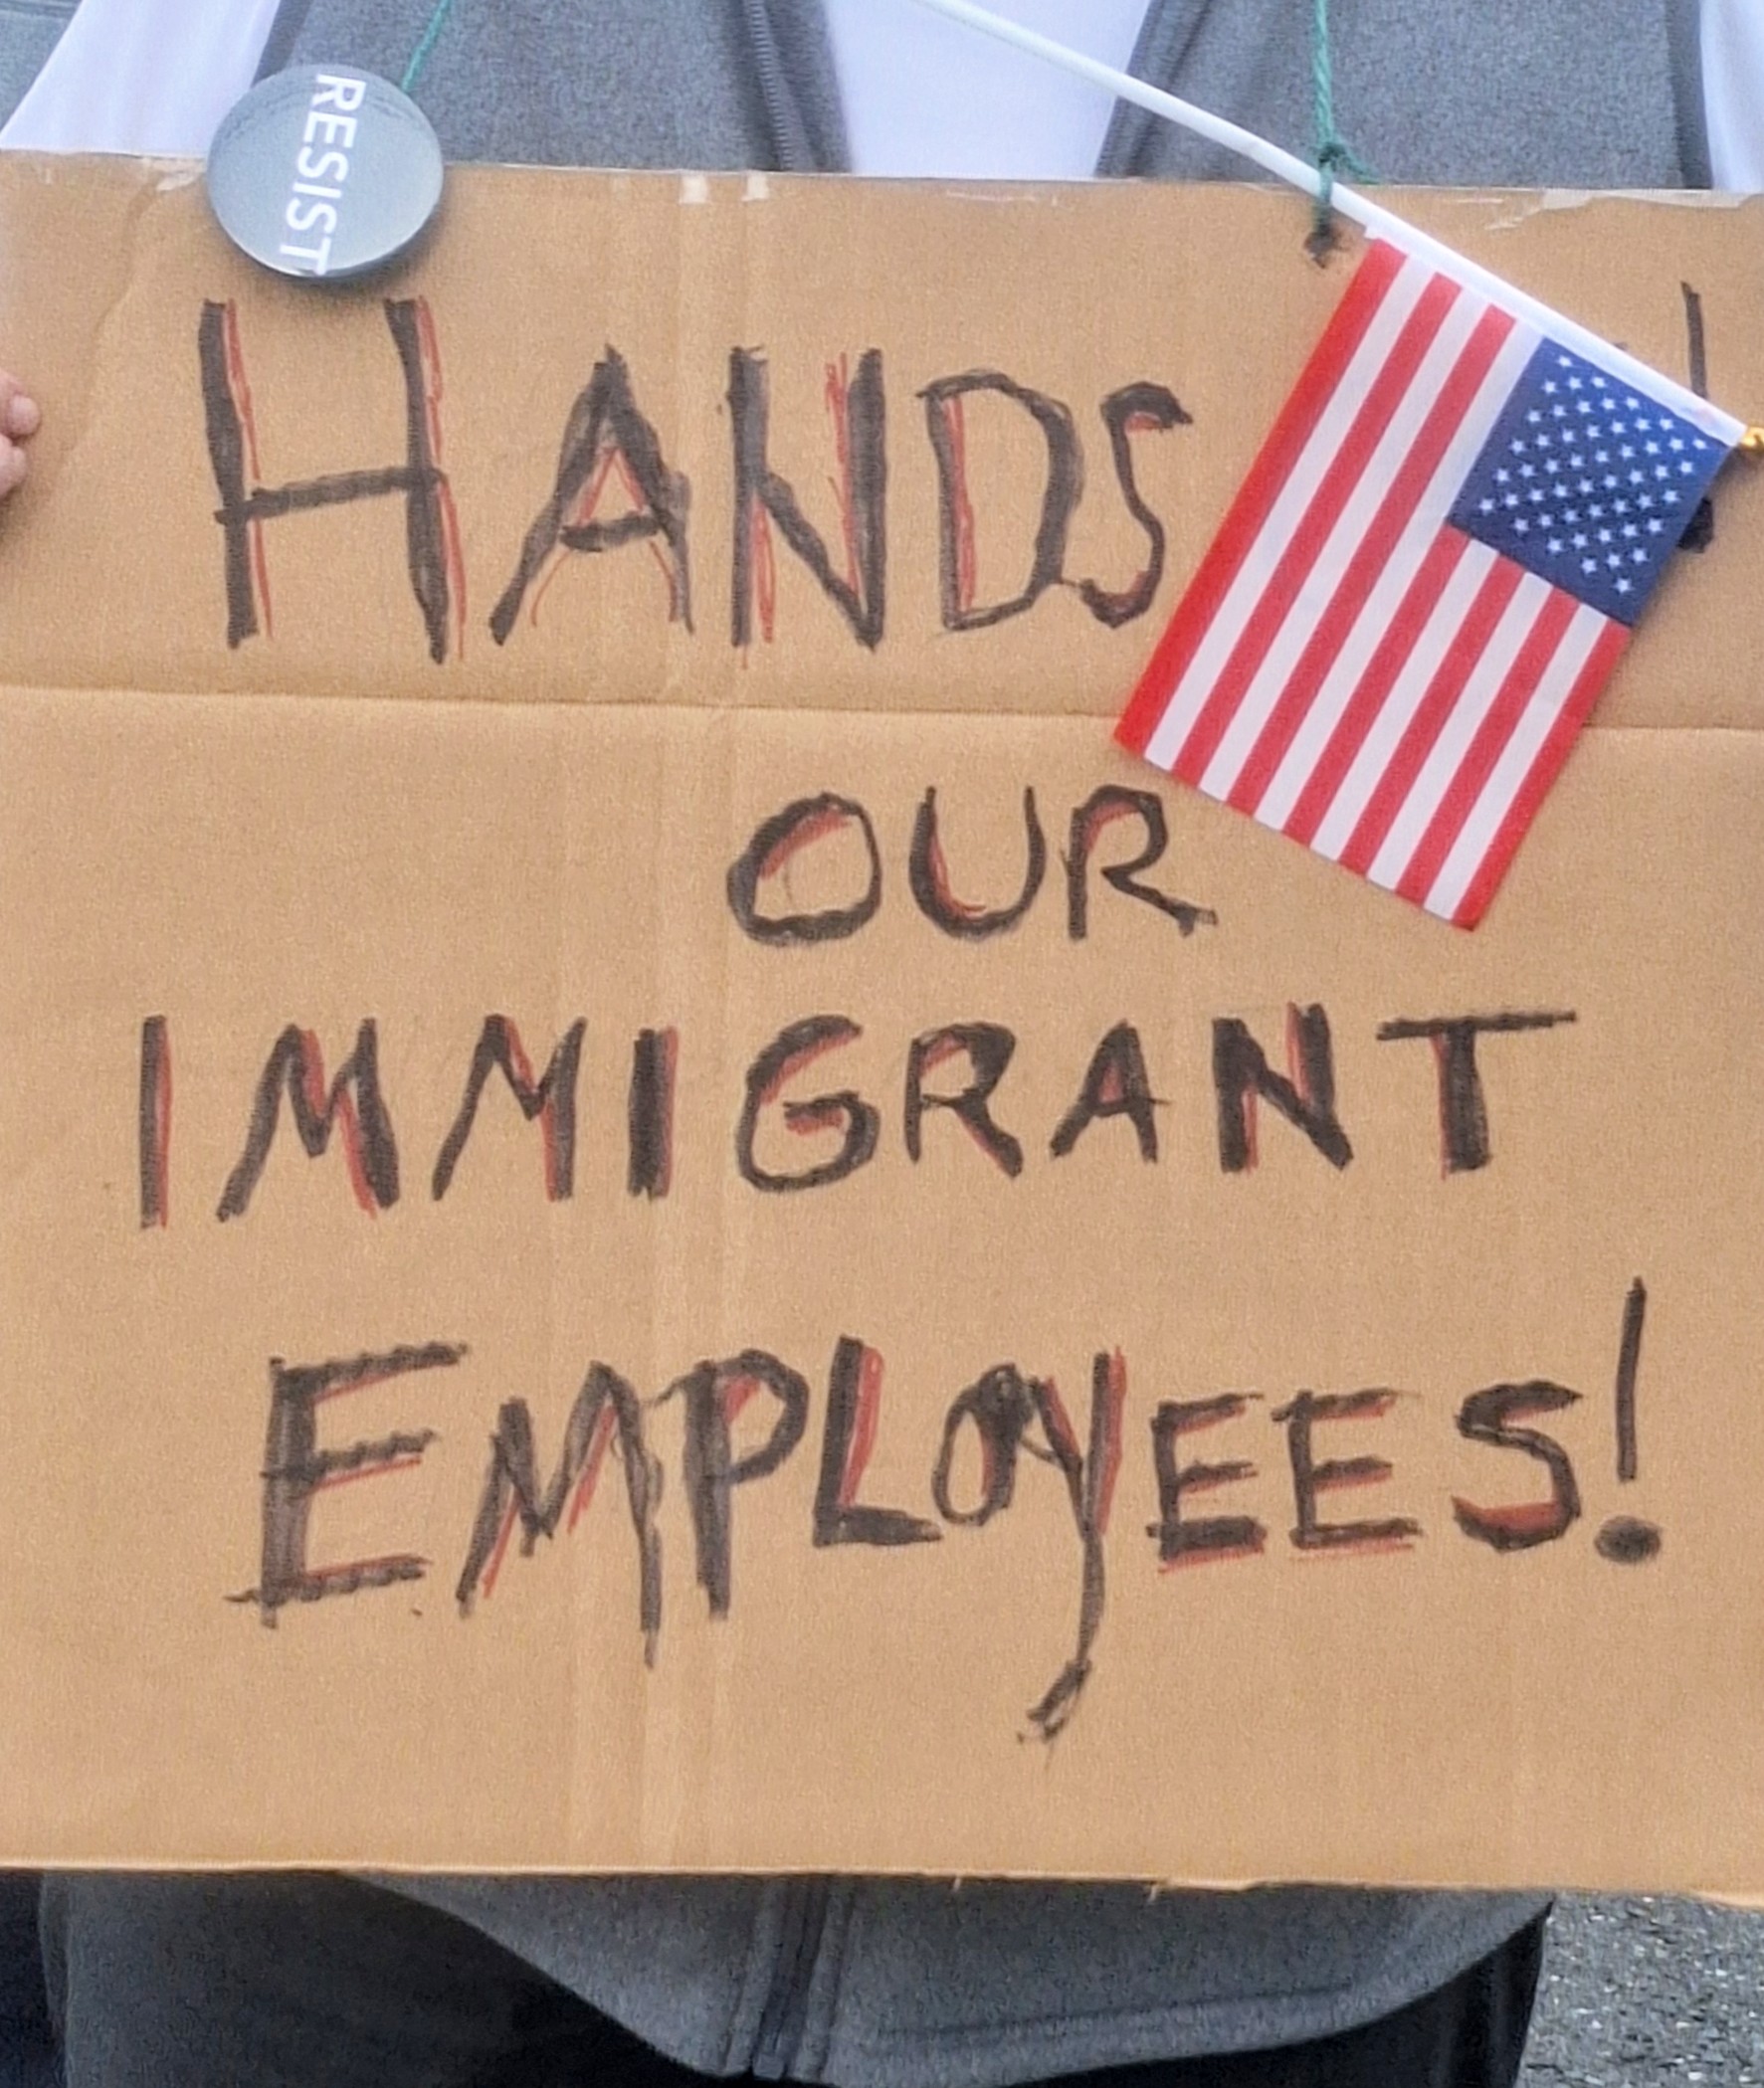 RESIST
HANDS !
OUR
IMMIGRANT
EMPLOYEES!